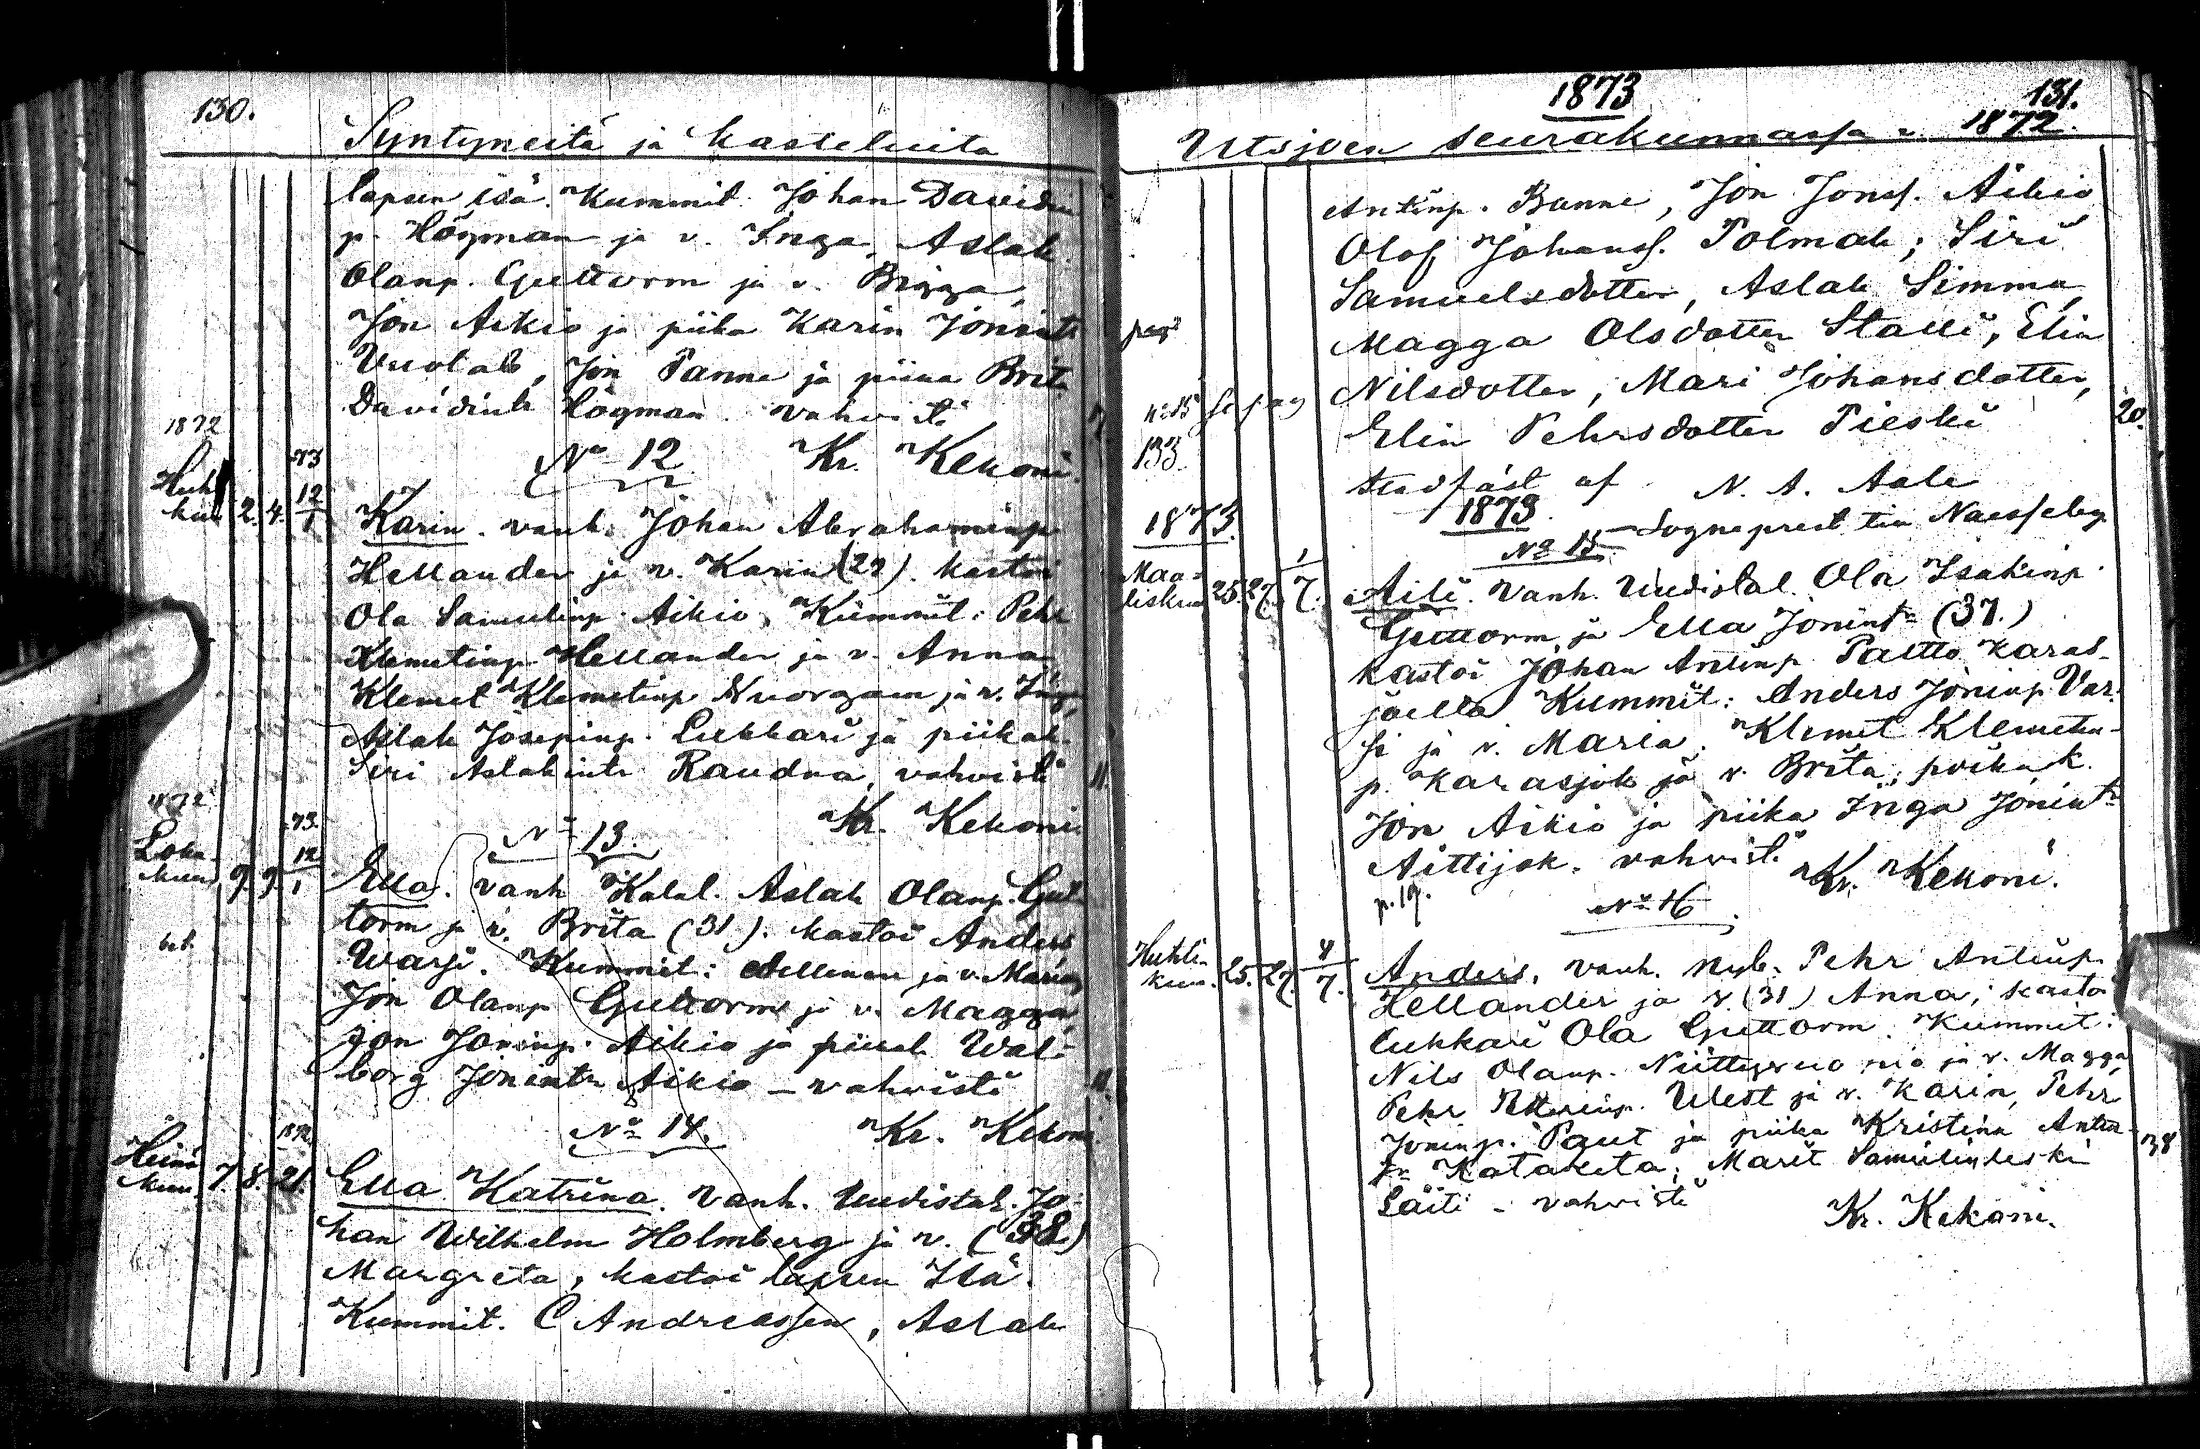 130.
Syntyneitä ja kasteluita
lapsen isä. Kummit. Johan Davidin
p. Högman ja v. Inga, Aslak
Olanp. Guttorm ja v. Brigga,
Jon Aikio ja piika Karin Jonint.
Vuolab, Jon Panne ja piika Brita
Davidint. Högman vahvisti
1872
No 12 Kr. Kekoni.
73
Huhti
kuu 2. 4. 12/1 Karin. vanh. Johan Abrahaminp
Hellander ja v. Karin (29). kastoi
Ola Samulinp. Aikio, Kummit: Pehr
Klemetinp. Hellander ja v. Anna,
Klemet Klemetinp Nuorgam ja v. Inga,
Aslak Josepinp. Lukkari ja piika
Siri Aslakint. Raudna, vahvisti
11.
1872
Kr. Kekoni.
73.
No 13.
Loka-
kuu 9. 9. 12/1 Ella. vanh Kalal. Aslak Olanp. Gut-
torm ja v. Brita (31). kastoi Anders
Warsi. Kummit: ja v. Maria,
Jon Olanp Guttorm ja v. Magga,
Jon Joninp. Aikio ja Wal-
borg Jonint. Aikio – vahvisti
11.
No 14. Kr. Kekoni
1872.
Heinä
kuu. 7. 8. 21. Ella Katrina. vanh. Uudistal. Jo-
han Wilhelm Holmberg ja v. (38.)
Margreta, kastoi lapsen Isä.
Kummit. C Andreassen, Aslak
1873
131.
Utsjoen seurakunnassa v. 1872.
Antinp. Banne, Jon Jonss. Aikio
Olof Johanss. Polmak; Siri
Samuelsdotter, Aslak Simma,
Magga Olsdotter Stalli, Elin
Nilsdotter, Mari Johansdotter,
No 15 se pag
133.
Elin Pehrsdotter Pieski
20.
stadfäst af N. A. Aale
1873. Sogneprest til Naesseby
1873.
No 15
Maa-
liskuu 25. 27. 1/7. Aili. vanh. Uudistal. Ola Isakinp
Guttorm ja Ella Jonint. (37.)
kastoi Johan Antinp. Paltto Karas-
joella Kummit: Anders Joninp Var-
si ja v. Maria. Klemet Klemetin-
p. Karasjok ja v. Brita; poika k.
Jon Aikio ja piika Inga Jonint
Aittijok. vahvisti
p. 19. Kr. Kekoni.
No 16
Huhti-
kuu. 25. 27. 4/7. Anders, vanh. Pehr Antinp.
Hellander ja v. (31) Anna; kastoi
lukkari Ola Guttorm. Kummit:
Nils Olanp. Niittyvuopio ja v. Magga,
Pehr Petterinp. West ja v. Karin, Pehr
Joninp. Paut ja piika Kristina Antin-
38
t. Katakeita, Marit Samulinleski
Läiti – vahvisti
Kr. Kekoni.